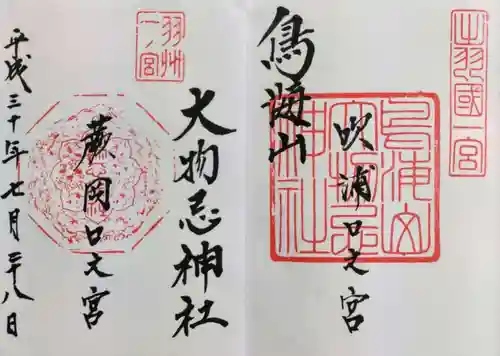 出羽國一宮
鳥海山
吹浦口之宮
鳥海山
大物忌
神社
羽州
一ノ宮
大物忌神社
蕨岡口之宮
平成三十年七月二十八日